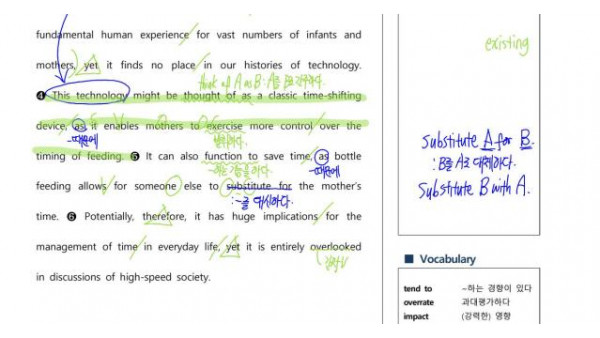 fundamental human experience for vast numbers of infants and
mothers, yet it finds no place in our histories of technology.
think of A as B : A를 B로 간주하다.
❹ This technology might be thought of as a classic time-shifting
device, as it enables mothers to exercise more control over the
-때문에
timing of feeding. ❺ It can also function to save time, as bottle
-때문에
feeding allows for someone else to substitute for the mother's
:~를 대신하다.
time. ❻ Potentially, therefore, it has huge implications for the
management of time in everyday life, yet it is entirely overlooked
in discussions of high-speed society.
existing
Substitute A for B.
: B를 A로 대체하다.
Substitute B with A.
■ Vocabulary
tend to ~하는 경향이 있다
overrate 과대평가하다
impact (강력한) 영향